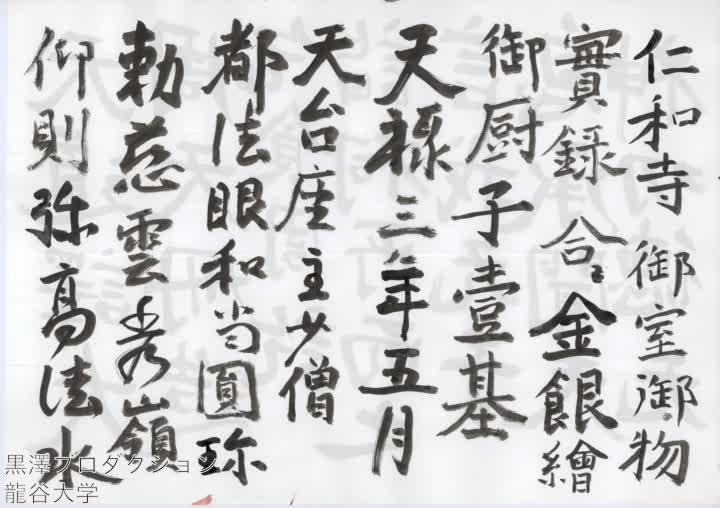 仁和寺御室御物
實録合〻金銀繪
御厨子壹基
天禄三年五月
天台座主少僧
都法眼和尚圓珎
勅慈雲秀嶺
仰則弥高法水
黒澤プロダクション
龍谷大学